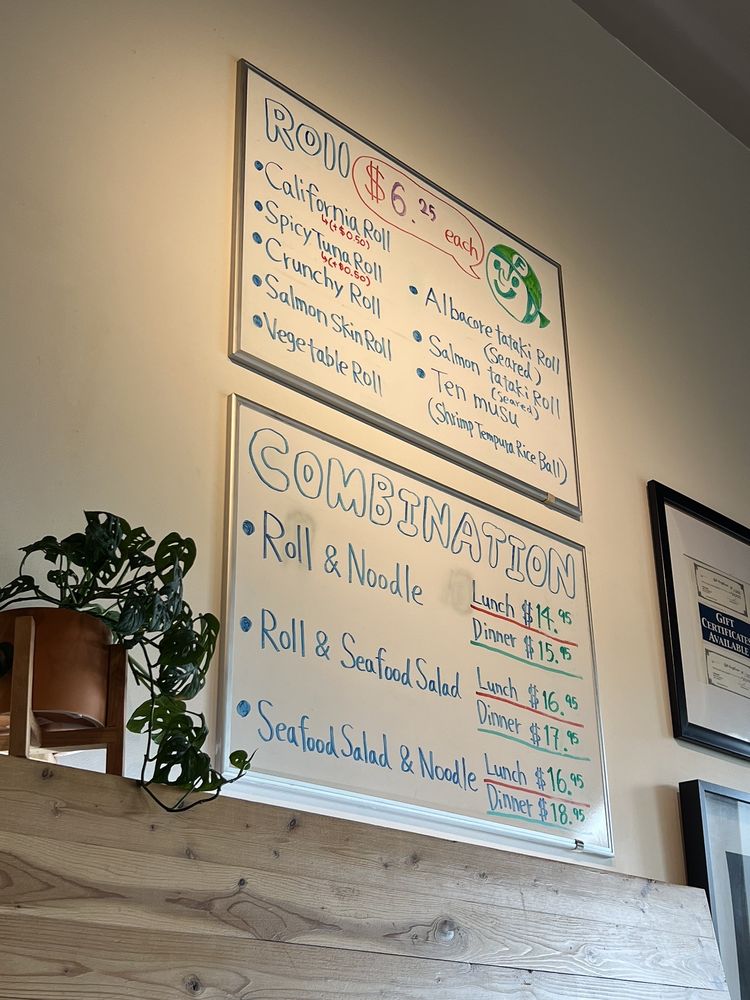 Roll
$6.25 each
• California Roll
↳(+$0.50)
• Spicy Tuna Roll
↳(+$0.50)
• Crunchy Roll
• Salmon Skin Roll
• Vegetable Roll
F
• Albacore tataki Roll
(seared)
• Salmon tataki Roll
(seared)
• Ten musu
(Shrimp Tempura Rice Ball)
COMBINATION
• Roll & Noodle
Lunch $14.95
Dinner $15.95
• Roll & Seafood Salad
Lunch $16.95
Dinner $17.95
• Seafood Salad & Noodle
Lunch $16.95
Dinner $18.95
GIFT
CERTIFICATES
AVAILABLE